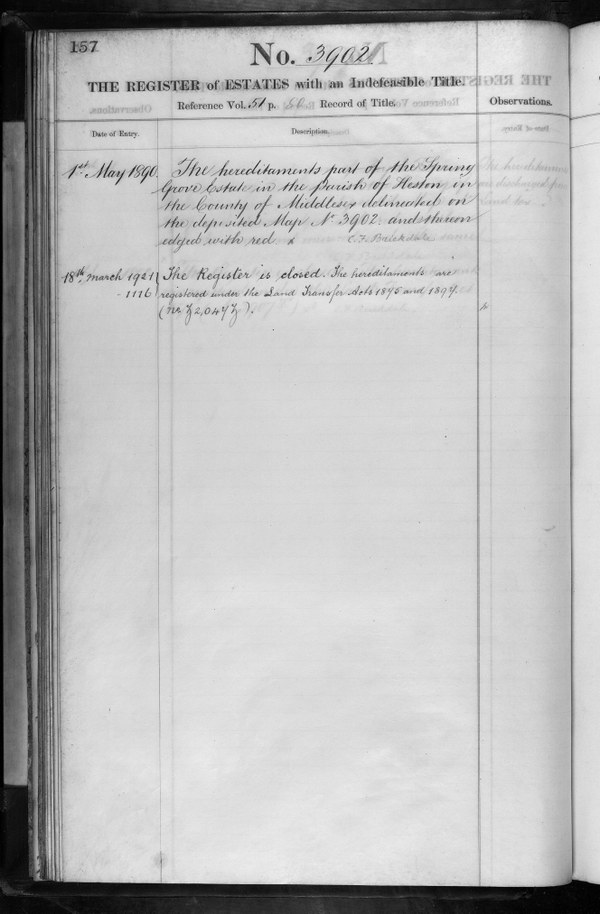 157
No. 3902
THE REGISTER of ESTATES with an Indefeasible Title.
Reference Vol. 51 p. 80 Record of Title.
Observations.
Date of Entry.
Description.
1st May 1890.
The hereditaments part of the Spring
Grove Estate in the Parish of Heston in
the County of Middlesex delineated on
the deposited Map No 3902 and thereon
edged with red x C. F. Brickdale
18th March 1921
1116
The Register is closed. The hereditaments are
registered under the Land Transfer Acts 1875 and 1897.